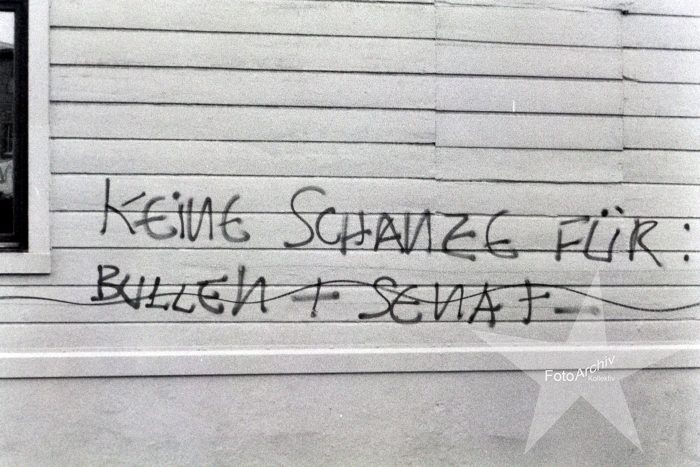 KEINE SCHANZE FÜR:
BULLEN + SENAT
FotoArchiv
Kollektiv